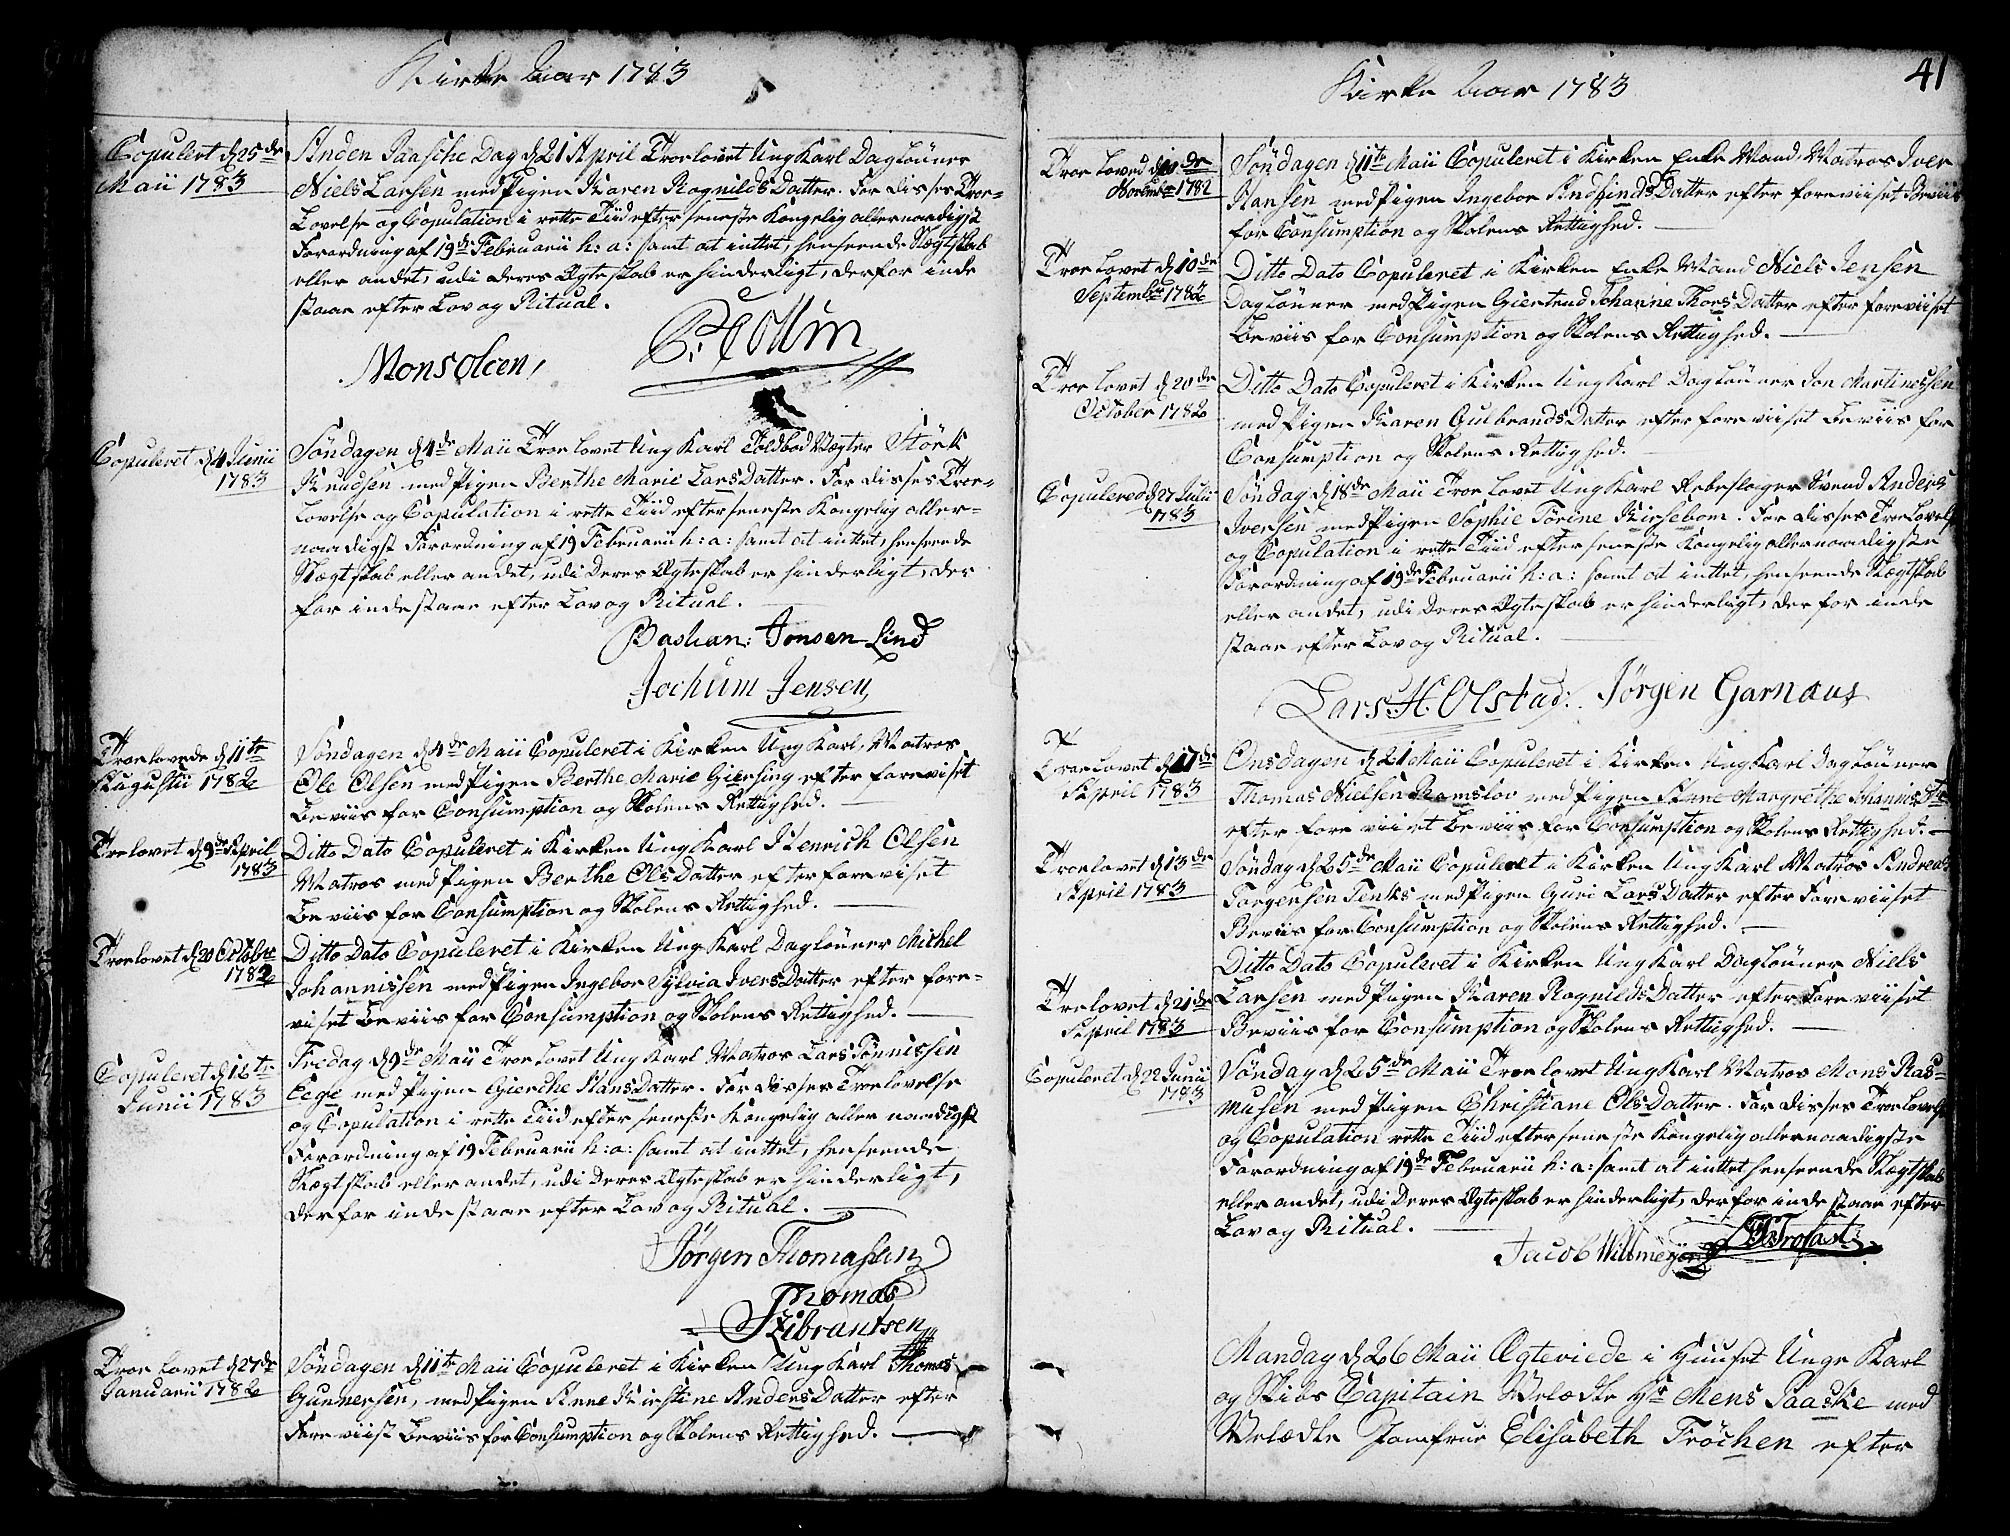 Kirke Aar 1783
Copulert d 25de
Maii 1783
Anden Paasche Dag d 21 April Troelovet Ung Karl Dagløuner
Niels Larsen med Pigen Karen RognildsDatter. For disses Troe-
Lovelse og Copulation i rette Tiid efter seneste Kongelig allernaadigst
Forordning af 19de Februarii h: a: samt at intet, henseende Slægtskab
eller andet, udi deres Ægteskab er hinderligt, derfor inde
staar efter Lov og Ritual.
Mons Olsen,
Copuleret d 4 Junii
1783
Søndagen d 4de Maii Troelovet Ung Karl Toldbod Vægter Störk
Knudsen med Pigen Berthe Marie LarsDatter. For disses Troe-
Lovelse og Copulation i rette Tiid efter seneste Kongelig aller-
naadigst Forordning af 19 Februarii h: a: samt at intet, henseende
Slægtskab eller andet, udi Deres Ægteskab er hinderligt, der
for indestaar efter Lov og Ritual.
Bastian: Jensen Lind
Jochum Jensen,
Troelovede d 11te
Augustii 1782
Søndagen d 4de Maii Copuleret i Kirken Ung Karl, Matros
Ole Olsen med Pigen Berthe Marie Giersing efter foreviset
Beviis for Consumption og Skolens Rettighed.
Trelovet d 9de April
1783
Ditto Dato Copuleret i Kirken Ung Karl Henrich Olsen
Matros med Pigen Berthe OlsDatter efter foreviset
Beviis for Consumption og Skolens Rettighed.
Troelovet d 20 Octobr
1782
Ditto Dato Copuleret i Kirken Ung Karl Dagløuner Michel
Johannissen med Pigen Ingebor Sylvia IversDatter efter fore-
viset Beviis for Consumption og Skolens Rettighed.
Copuleret d 12te
Junii 1783
Fredag d 9de Maii Troelovet Ung Karl Matros Lars Tønnissen
Eege med Pigen Gierthe HansDatter. For disses Troelovelse
og Copulation i rette Tiid efter seneste Kongelig aller naadigst
Forordning af 19 Februarii h: a: samt at intet, henseende
Slægtskab eller andet, udi Deres Ægteskab er hinderligt,
derfor indestaar efter Lov og Ritual.
Jørgen Thomassen
Thomas
Zibrantsen
Troelovet d 27de
Januarii 1782
Søndagen d 11te Maii Copuleret i Kirken Ung Karl Thomas
Gunnersen, med Pigen Anne Kirstine AndersDatter efter
Foreviist Beviis for Consumption og Skolens Rettighed.
Kirke Aar 1783
41
Troeloved d 10de
Novembr 1782
Søndagen d 11te Maii Copuleret i Kirken Enke Mand, Matros Iver
Hansen med Pigen Ingebor AndfindsDatter efter foreviiset Beviis
for Consumption og Skolens Rettighed.
Troelovet d 10de
Septembr 1782
Ditto Dato Copuleret i Kirken Enke Mand Niels Jensen
Dagløuner med Pigen Giertrud Johanne ThorsDatter efter foreviiset
Beviis for Consumption og Skolens Rettighed.
Troelovet d 20de
October 1782
Ditto Dato Copuleret i Kirken Ung Karl Dagløuner Jon Martinussen
med Pigen Karen GulbrandsDatter efter foreviiset Beviis for
Consumption og Skolens Rettighed.
Copulered d 27 Julii
1783
Søndag d 18de Maii Troelovet Ung Karl Rebeslager Svend Anders
Iversen med Pigen Sophie Torine Kirsebom. For disses TroeLovelse
og Copulation i rette Tiid efter seneste Kongelig allernaadigste
Forordning af 19de Februarii h: a: samt at intet, henseende Slægtskab
eller andet, udi Deres Ægteskab er hinderligt, derfor inde
staar efter Lov og Ritual.
Lars. H. Olstad: Jørgen Garnaus
Troelovet d 17de
April 1783
Onsdagen d 21 Maii Copuleret i Kirken Ung Karl Dagløuner
Thomas Nielsen Ramslov med Pigen Anne Margrethe JohannisDtr
efter foreviiset Beviis for Consumption og Skolens Rettighed.
Troelovet d 13de
April 1783
Søndag d 25de Maii Copuleret i Kirken Ung Karl Matros Andreas
Torgersen Tenks med Pigen Guri LarsDatter efter Foreviiset
Beviis for Consumption og Skolens Rettighed.
Trelovet d 21de
April 1783
Ditto Dato Copuleret i Kirken Ung Karl Dagløuner Niels
Larsen med Pigen Karen RognildsDatter efter Foreviiset
Beviis for Consumption og Skolens Rettighed.
Copuleret d 22 Junii
1783
Søndag d 25de Maii Troelovet Ung Karl Matros Mons Ras-
musen med Pigen Christiane OlsDatter. For disses Troelovelse
og Copulation rette Tiid efter seneste Kongelig allernaadigste
Forordning af 19de Februarii h: a: samt at intet henseende Slægtskab
eller andet, udi Deres Ægteskab er hinderligt, derfor inde staar efter
Lov og Ritual.
Jacob Willmeyer Trofast
Mandag d 26 Maii Ægteviede i Huuset Unge Karl
og Skibs Capitain Velædle Hr Mens Paaske med
Velædle Jomfrue Elisabeth Frøchen efter